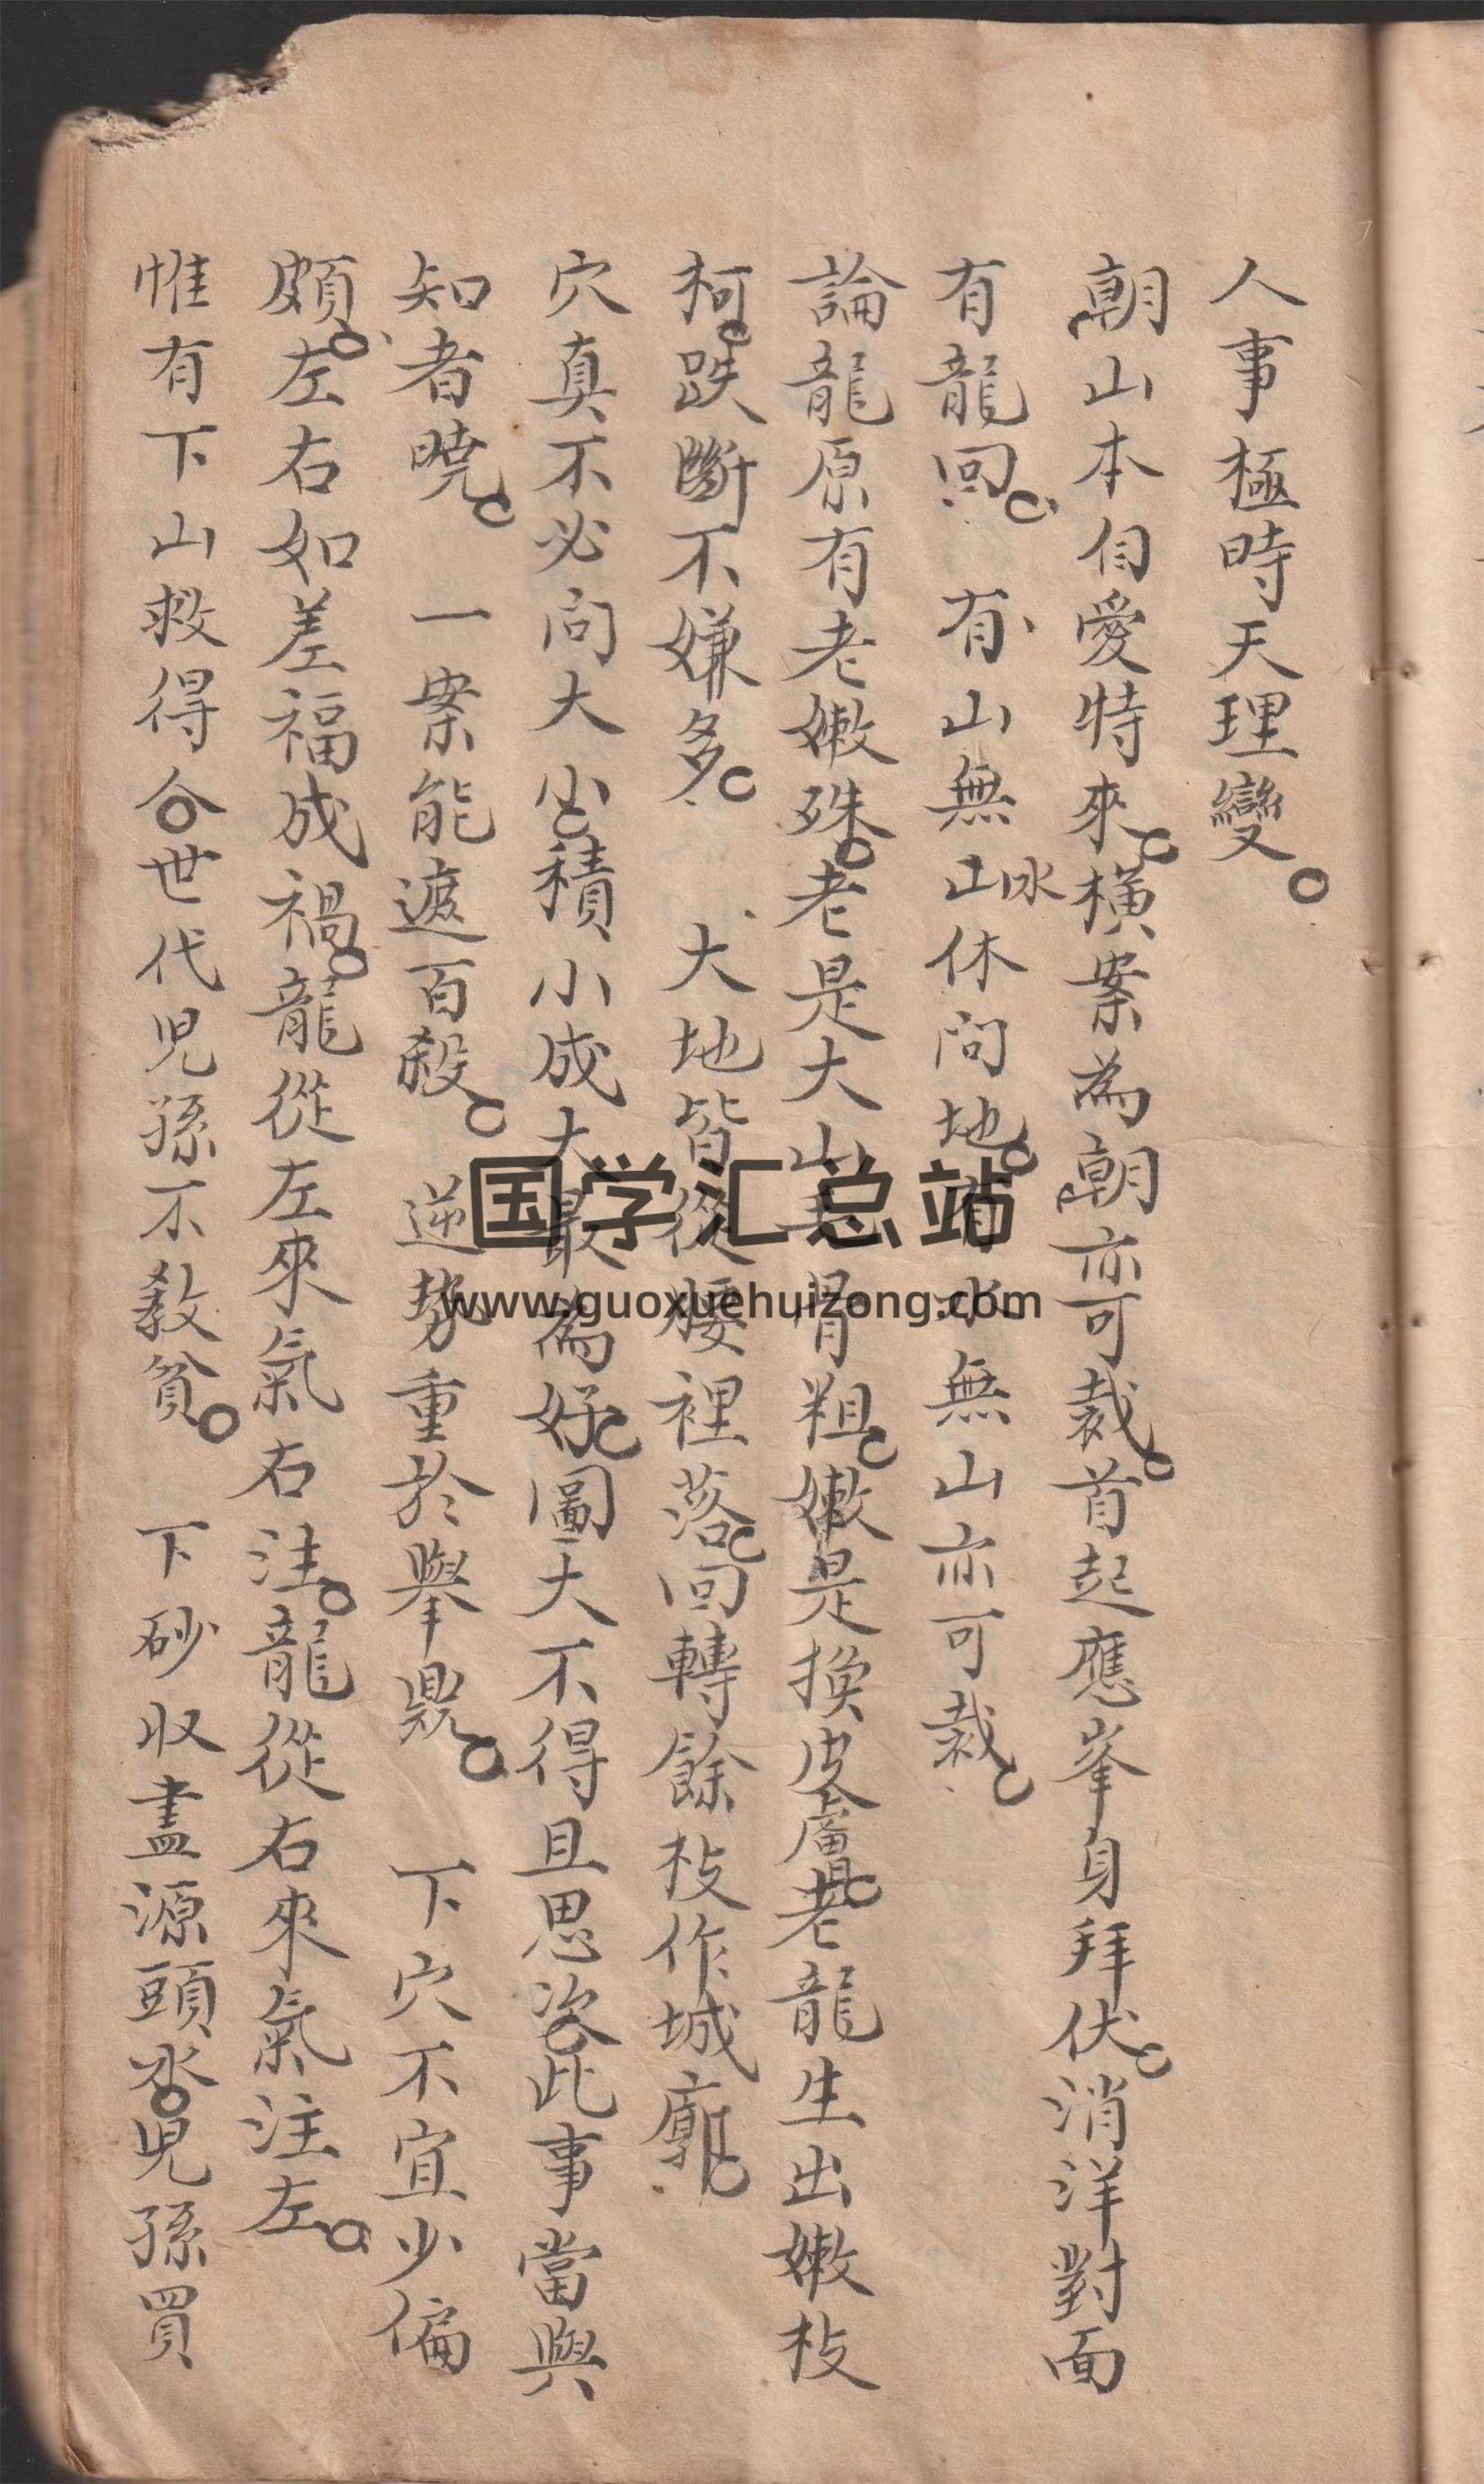 人事極時天理變。
朝山本自愛特來。橫案為朝亦可裁。首起應峯身拜伏。消洋對面
有龍回。有山無山水休問地。有水無山亦可裁。
論龍原有老嫩殊。老是大山毛骨粗。嫩是換皮膚。老龍生出嫩枝
柯。跌斷不嫌多。大地皆從腰裡落。回轉餘枝作城廓。
穴真不必问大小。積小成大最為好。圖大不得且思姿。此事當與
知者曉。一案能遮百殺。逆勢重於舉鼎。下穴不宜少偏
頗。左右如差福成禍。龍從左來氣右注。龍從右來氣注左。
惟有下山救得合。世代児孫不教貧。下砂収盡源頭水。児孫買
国学汇总站
www.guoxuehuizong.com